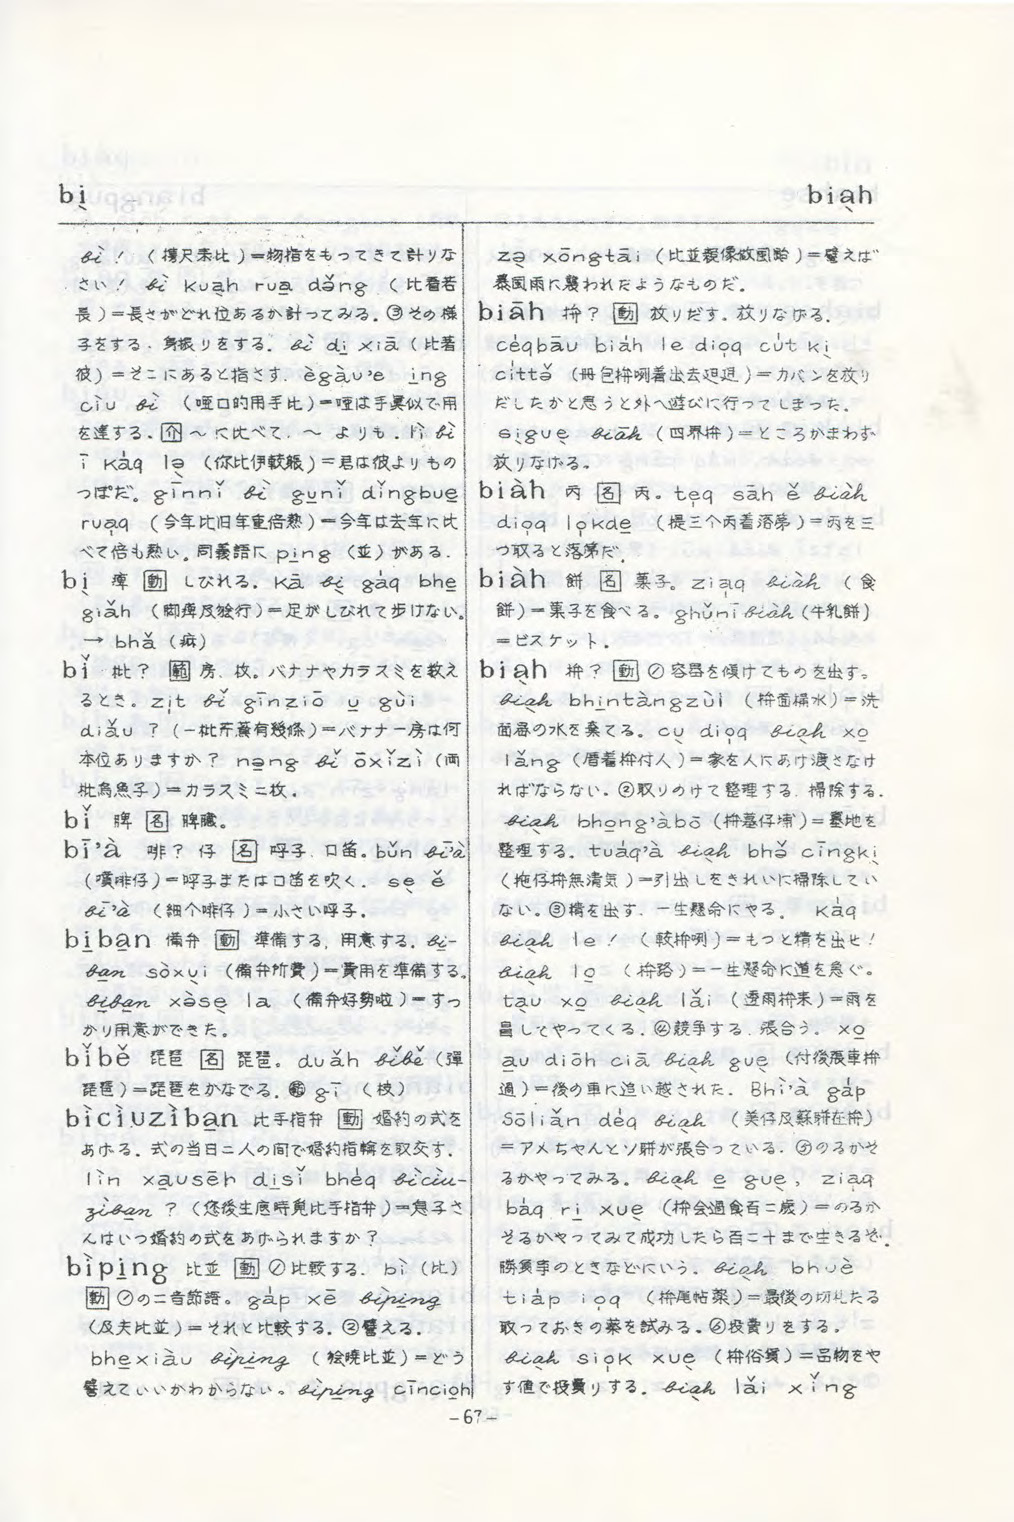 bi̱
bia̱h
bì！（攑尺来比）＝物指をもってきて計りな
さい！bì kuạh rua̱ dǎng.（比看若
長）＝長さがどれ位あるか計ってみる．③その様
子をする．身振りをする．bì di̱ xiā（比着
彼）＝そこにあると指さす．ēgàu'e i̱ng
ciù bì （啞口的用手比）＝啞は手真似で用
を達する．介 〜に比べて．〜よりも．lì bì
ī káq lə （你比伊較）＝君は彼よりもの
っぽだ。gīnnǐ bì gu̱nǐ dǐngbue̱
ruạq （今年比旧年重倍熱）＝今年は去年に比
べて倍も熱い。同義語に pi̱ng（並）がある．
bị 痺 動 しびれる．Kā bị gáq bhe̱
giǎh（脚痺及𣍐行）＝足がしびれて歩けない。
→ bhǎ（痲）
bǐ 枇？ 範 房．枚。バナナやカラスミを数え
るとき。zịt bǐ gīnziō u̱ gùi
diǎu ？（一枇芎蕉有幾條）＝バナナ一房は何
本位ありますか？nəng bǐ ōxǐzì（両
枇烏魚子）＝カラスミ二枚．
bǐ 脾 名 脾臓。
bī'à 啡？仔 名 呼子．口笛。bǔn bī'à
（噴啡仔）＝呼子または口笛を吹く．sẹ ě
bī'à （細个啡仔）＝小さい呼子．
bi̱ba̱n 備弁 動 準備する．用意する．bi̱-
ba̱n sòxụi（備弁所費）＝費用を準備する。
bi̱ba̱n xàsẹ la （備弁好勢啦）＝すっ
かり用意ができた。
bǐbě 琵琶 名 琵琶。duǎh bǐbě（彈
琵琶）＝琵琶をかなでる．gī（枝）
bìcìuzìba̱n 比手指弁 動 婚約の式を
あげる．式の当日二人の間で婚約指輪を取交す．
lìn xa̱usēh di̱sǐ bhéq bìciù-
zìba̱n ？（恁後生時比手指弁）＝息子さ
んはいつ婚約の式をあげられますか？
bìpi̱ng 比並 動 ①比較する．bì（比）
動 ①の二音節語。gáp xē bìpi̱ng
（及夫比並）＝それと比較する．②譬える．
bhe̱xiàu bìpi̱ng （𣍐曉比並）＝どう
譬えていいかわからない。bìpi̱ng cīnciọh
zə̣ xōngtāi（比並親像做風颱）＝譬えば
暴風雨に襲われたようなものだ．
biāh 拚？ 動 放りだす．放りなげる．
céqbāu biāh le dioq cút kị
cittə̌（冊包拚咧着出去𨑨迌）＝カバンを放り
だしたかと思うと外へ遊びに行ってしまった．
sịgue biāh（四界拚）＝ところかまわず
放りなげる。
biàh 丙 名 丙。tẹq sāh ě biàh
dioq lokde（提三个丙着落第）＝丙を三
つ取ると落第だ．
biàh 餅 名 菓子。ziaq biàh （食
餅）＝菓子を食べる。ghǔnī biàh（牛乳餅）
＝ビスケット．
biạh 拚？ 動 ①容器を傾けてものを出す。
biạh bhi̱ntàngzùi （拚面桶水）＝洗
面器の水を棄てる。cụ dioq biạh xo̱
lǎng（厝着拚付人）＝家を人にあけ渡さなけ
ればならない。②取りのけて整理する．掃除する．
biạh bho̱ng'àbō（拚墓仔埔）＝墓地を
整理する．tuáq'à biạh bhə̌ cīngkị
（拖仔拚無清気）＝引出しをきれいに掃除してい
ない。③精を出す．一生懸命にやる。káq
biạh le！（較拚咧）＝もっと精を出せ！
biạh lo̱ （拚路）＝一生懸命に道を急ぐ。
tạu xo̱ biạh lǎi（透雨拚来）＝雨を
冒してやってくる．④競争する．張合う．xo̱
a̱u diōh ciā biạh gue̱（付後張車拚
過）＝後の車に追い越された．Bhì'à gáp
Sōliǎn déq biạh （美仔及蘇聯在拚）
＝アメちゃんとソ聯が張合っている．⑤のるかそ
るかやってみる。biạh e̱ gue̱, ziaq
báq ri̱ xuẹ（拚会過食百二歳）＝のるか
そるかやってみて成功したら百二十まで生きるぞ．
勝負事のときなどにいう．biạh bhuè
tiáp ioq （拚尾帖薬）＝最後の切札たる
取っておきの薬を試みる．⑥投売りをする。
biạh siok xuẹ（拚俗貨）＝品物をや
す値で投売りする．biạh lǎi xǐng
-67-